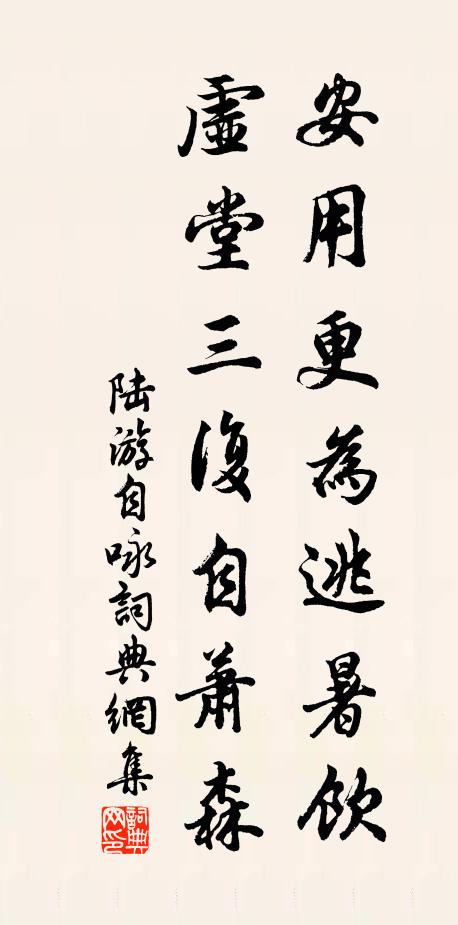 安用更為逃暑飲
虛堂三復自蕭森
陸游自咏詞典網集
詞典網印